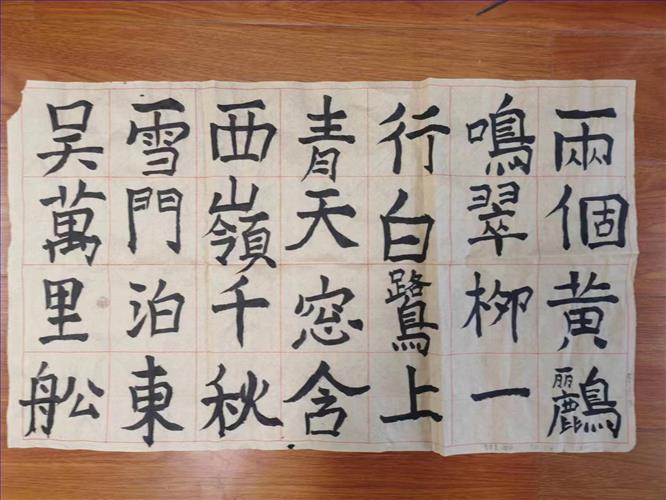 兩個黃鸝
鳴翠柳一
行白鷺上
青天窓含
西嶺千秋
雪門泊東
吴萬里舩